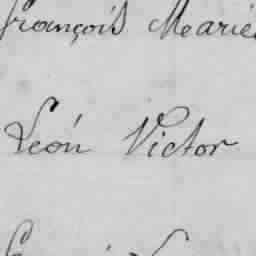 françois Marie
Léon Victor